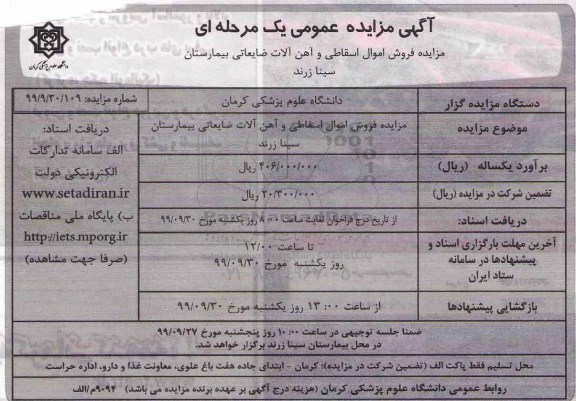 آگهی مزایده عمومی یک مرحله ای
مزایده فروش اموال اسقاطی و آهن آلات ضایعاتی بیمارستان
سینا زرند
دانشگاه علوم پزشکی کرمان
دستگاه مزایده گزار
دانشگاه علوم پزشکی کرمان
شماره مزایده: ۹۹/۹/۳۰/۱۰۹
موضوع مزایده
مزایده فروش اموال اسقاطی و آهن آلات ضایعاتی بیمارستان
سینا زرند
برآورد یکساله (ریال)
۴۰۶/۰۰۰/۰۰۰ ریال
تضمین شرکت در مزایده (ریال)
۲۰/۳۰۰/۰۰۰ ریال
دریافت اسناد:
از تاریخ درج فراخوان لغایت ساعت ۸:۰۰ روز یکشنبه مورخ ۹۹/۰۹/۳۰
آخرین مهلت بارگزاری اسناد و
پیشنهادها در سامانه
ستاد ایران
تا ساعت ۱۲/۰۰
روز یکشنبه مورخ ۹۹/۰۹/۳۰
بازگشایی پیشنهادها
از ساعت ۱۳:۰۰ روز یکشنبه مورخ ۹۹/۰۹/۳۰
دریافت اسناد:
الف سامانه تدارکات
الکترونیکی دولت
www.setadiran.ir
ب) پایگاه ملی مناقصات
http://iets.mporg.ir
(صرفا جهت مشاهده)
ضمنا جلسه توجیهی در ساعت ۱۰:۰۰ روز پنجشنبه مورخ ۹۹/۰۹/۲۷
در محل بیمارستان سینا زرند برگزار خواهد شد.
محل تسلیم فقط پاکت الف (تضمین شرکت در مزایده): کرمان - ابتدای جاده هفت باغ علوی، معاونت غذا و دارو، اداره حراست
روابط عمومی دانشگاه علوم پزشکی کرمان (هزینه درج آگهی بر عهده برنده مزایده می باشد) ۹۰۹۴م/الف